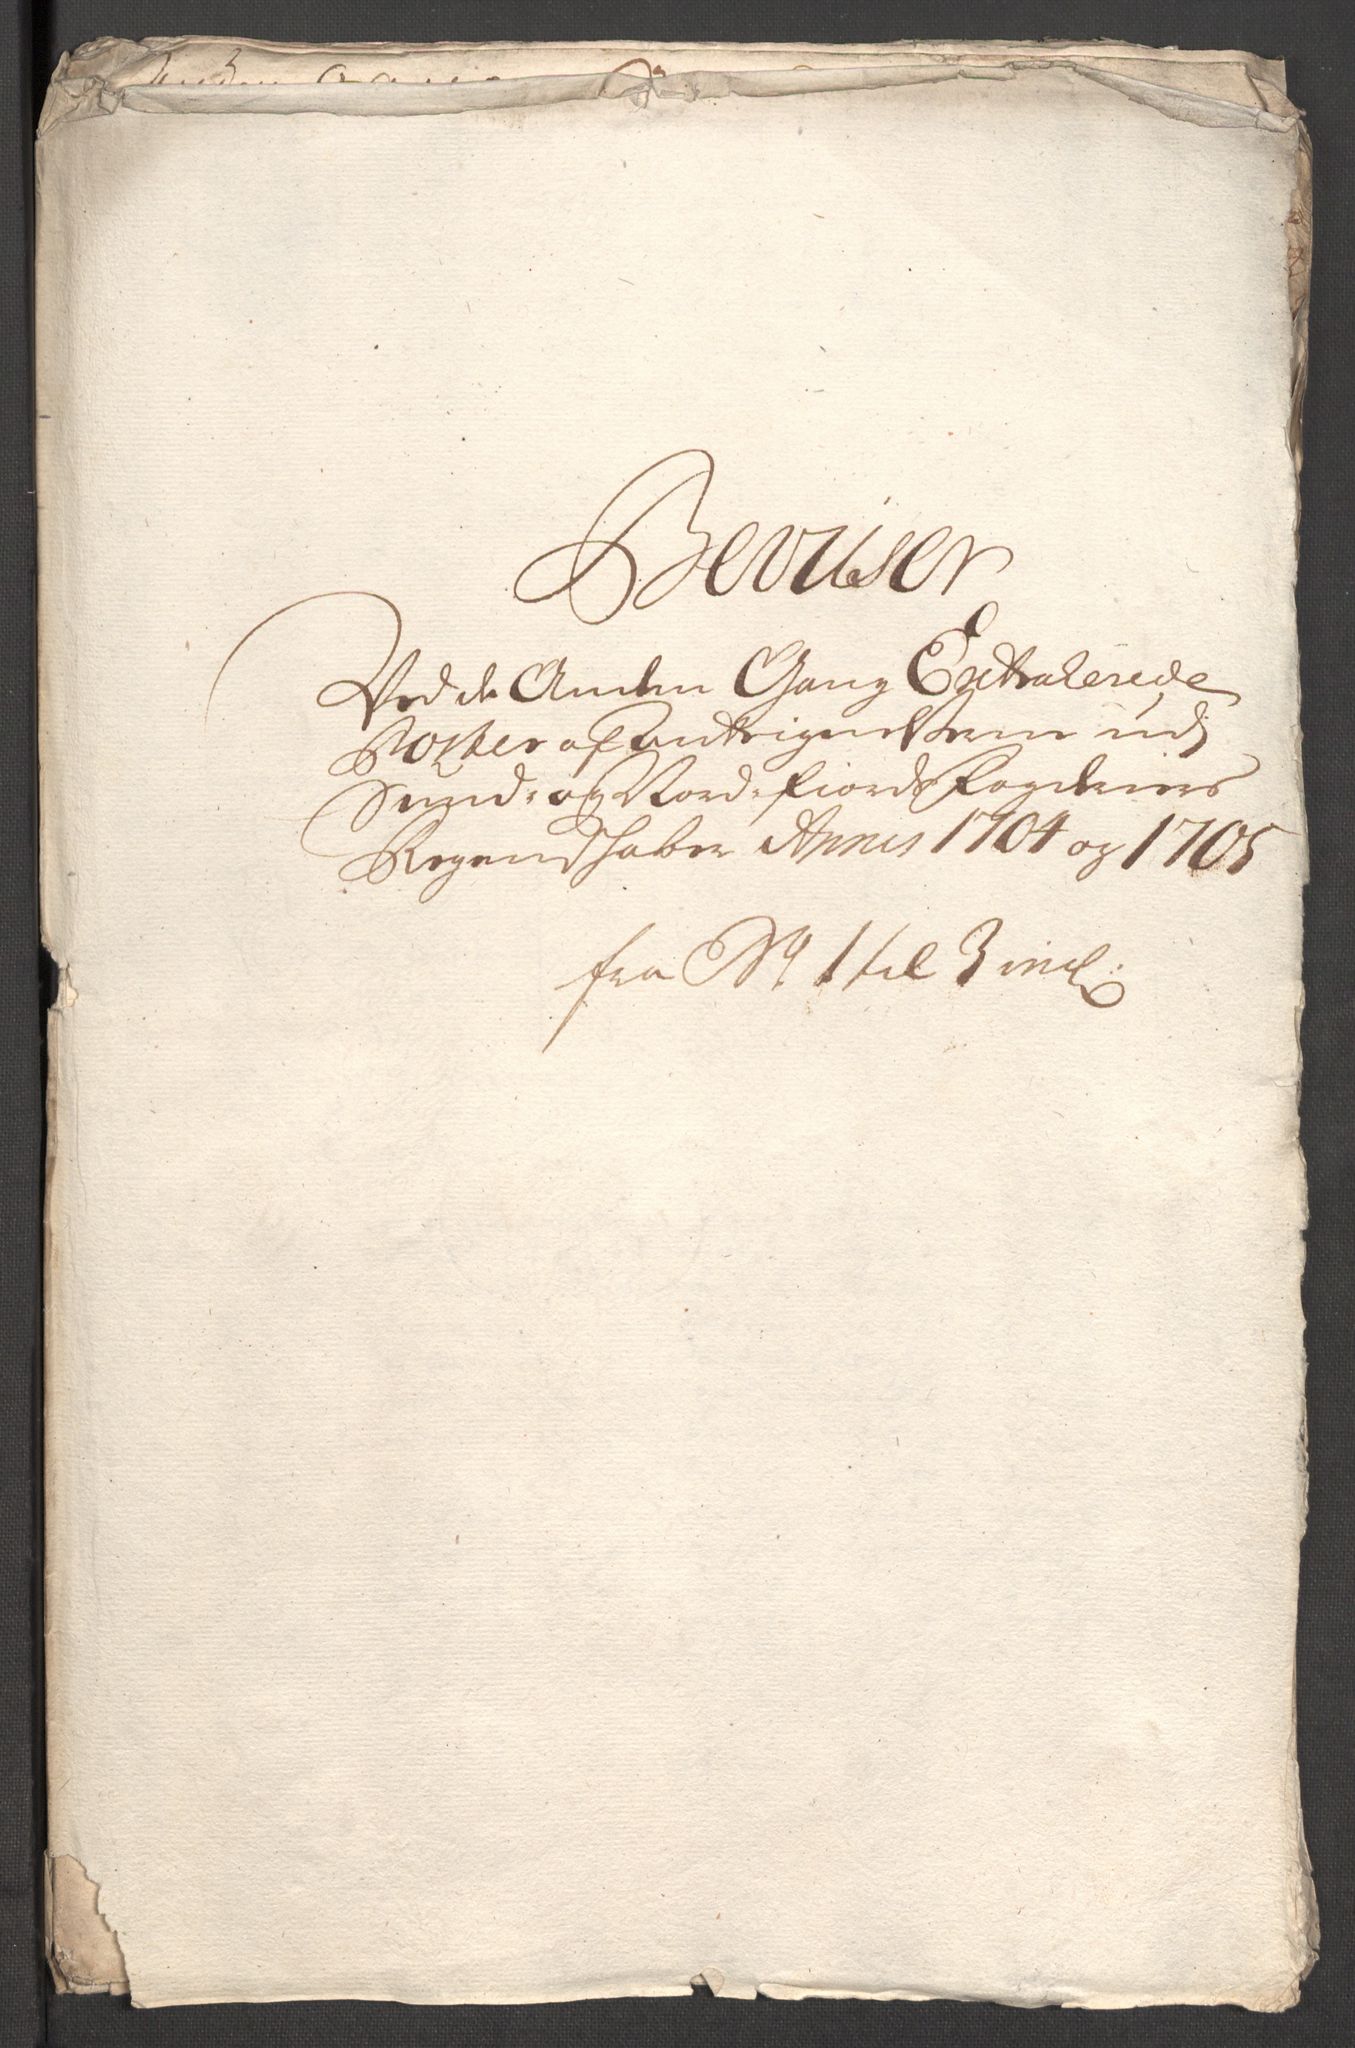 Beviiser
Ved de Anden Gang Extraherede
Poster af Antegnelserne udj
Sund- og Nord-fiords Fogderiers
Regenskaber Annis 1704 og 1705
fra No 1 til 3 incl: